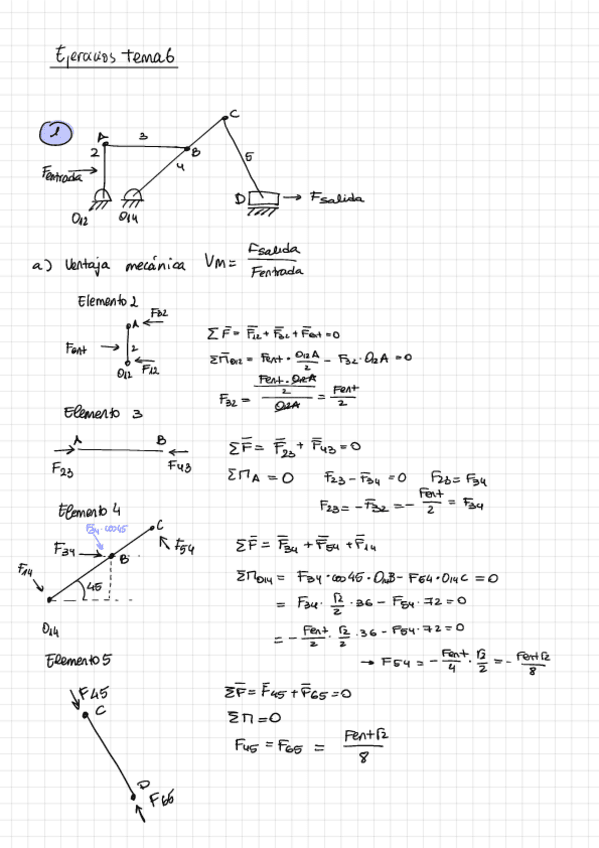 Ejercicios tema 6
1
A
3
C
2
B
4
5
Fentrada
D
Fsalida
O12
O14
a) Ventaja mecánica Vm = Fsalida / Fentrada
Elemento 2
F32
A
Fent
2
O12
F12
ΣF̄ = F̄12 + F̄32 + F̄ent = 0
ΣM̄O12 = Fent · O12A/2 - F32 · O2A = 0
F32 = (Fent · O2A / 2) / O2A = Fent/2
Elemento 3
A
B
F23
F43
ΣF̄ = F̄23 + F̄43 = 0
ΣMA = 0 F23 - F34 = 0 F23 = F34
F23 = -F32 = - Fent/2 = F34
Elemento 4
F34 · cos45
C
F34
F54
B
F14
45
O14
ΣF̄ = F̄34 + F̄54 + F̄14
ΣMO14 = F34 · cos45 · O14B - F54 · O14C = 0
= F34 · √2/2 · 36 - F54 · 72 = 0
= - Fent/2 · √2/2 · 36 - F54 · 72 = 0
→ F54 = - Fent/4 · √2/2 = - Fent√2/8
Elemento 5
F45
C
D
F65
ΣF̄ = F̄45 + F̄65 = 0
ΣM = 0
F45 = F65 = Fent√2/8